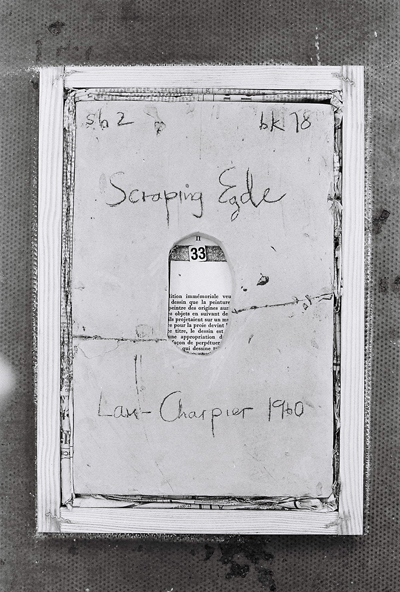 sb 2 bk 18
Scraping Egde
II
33
ition immémoriale veu
dessin que la peinture
peintre des origines aur
s objets en suivant de
ls projetaient sur un m
e pour la proie devint
e titre, le dessin est
une appropriation d
açon de perpétuer
qui dessine
Charpier 1960